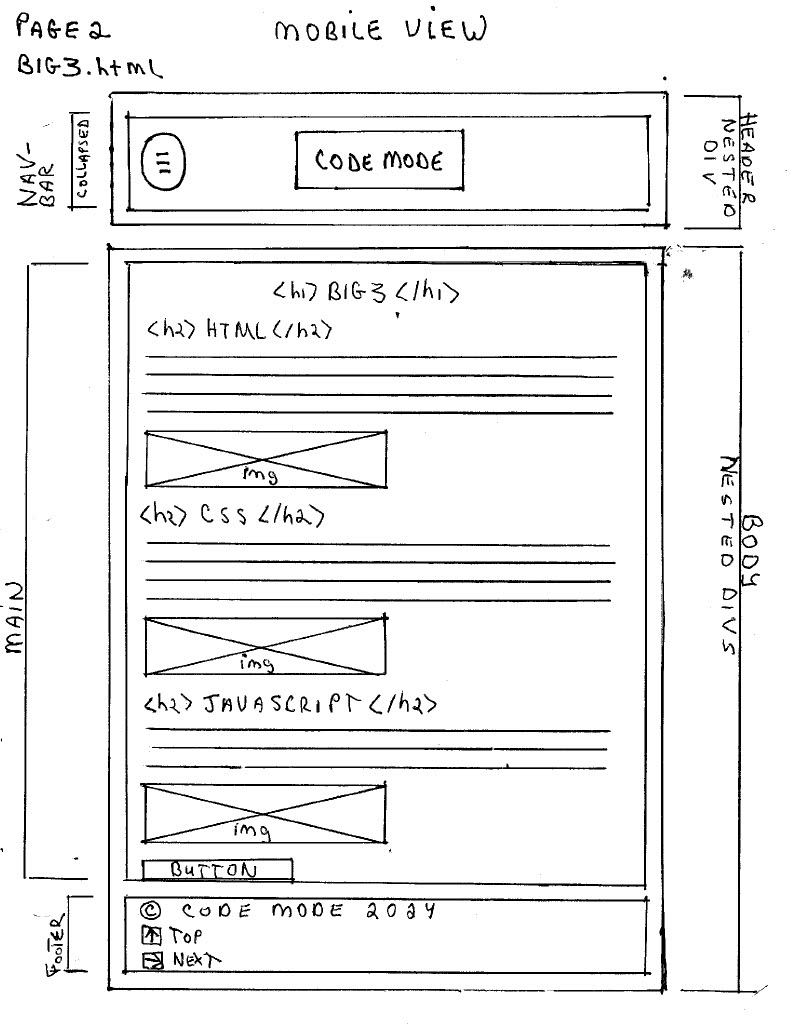 PAGE 2
MOBILE VIEW
BIG3.html
NAV-BAR
COLLAPSED
CODE MODE
HEADER
NESTED DIV
<h1> BIG3 </h1>
<h2> HTML </h2>
img
<h2> CSS </h2>
img
<h2> JAVASCRIPT </h2>
img
BUTTON
MAIN
BODY
NESTED DIVS
FOOTER
© CODE MODE 2024
TOP
NEXT